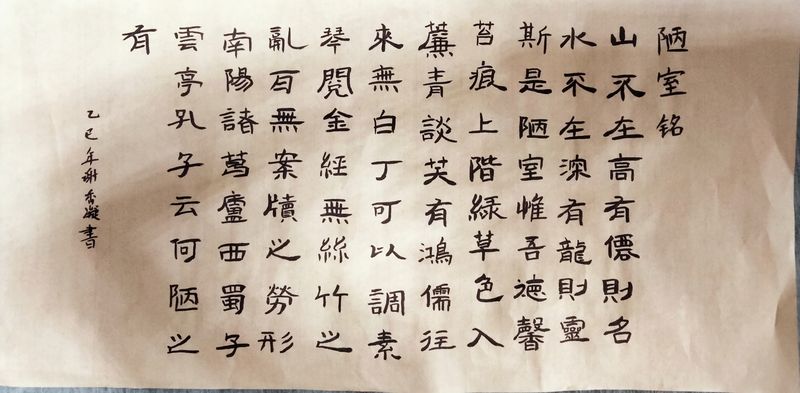 陋室铭
山不在高有僊則名
水不在深有龍則靈
斯是陋室惟吾德馨
苔痕上階綠草色入
簾青談笑有鴻儒往
來無白丁可以調素
琴閱金經無絲竹之
亂耳無案牘之勞形
南陽諸葛廬西蜀子
雲亭孔子云何陋之
有
乙巳年谢香凝書